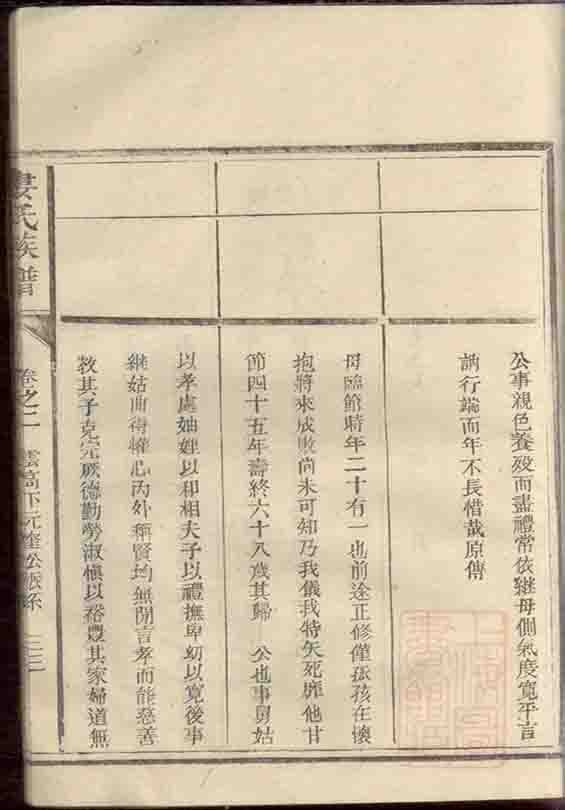 公事親色養歿而盡禮常依繼母側氣度寬平言
訥行端而年不長惜哉原傳
母臨節時年二十有一也前途正修僅孩在懷
抱將來成敗尚未可知乃我儀我特矢死靡他甘
節四十五年壽終六十八歲其歸 公也事舅姑
以孝處妯娌以和相夫子以禮撫卑幼以寬後事
繼姑曲得懽心內外稱賢均無閒言孝而能慈善
教其子克完厥德勤勞淑慎以裕豐其家婦道無
婁氏族譜
卷之二 雲高下元奎公派系